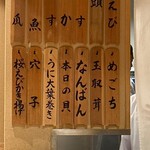 えび
頭
か
す
魚
めごち
玉取茸
なんばん
本日の貝
うに大葉巻き
穴子
桜えびかき揚げ